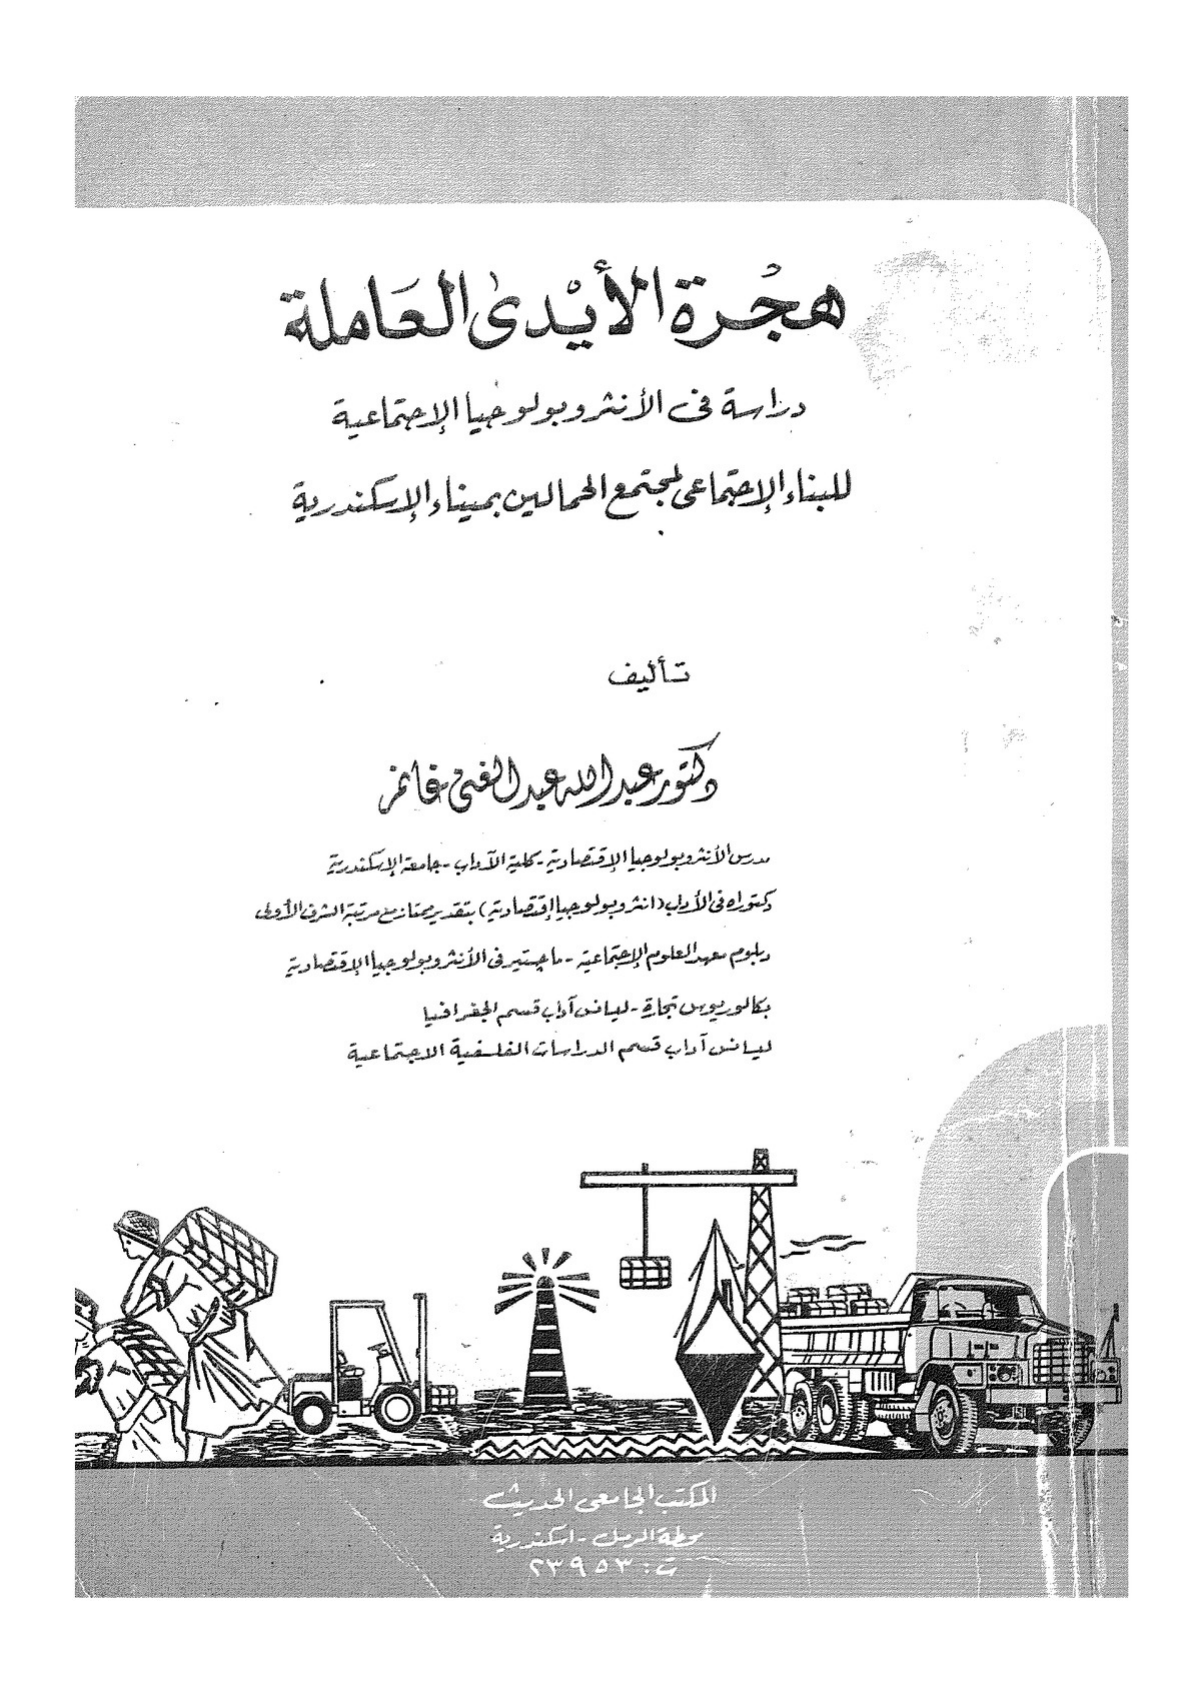 هجرة الأيدى العاملة
دراسة فى الأنثروبولوجيا الإجتماعية
للبناء الإجتماعى لمجتمع الحمالين بميناء الإسكندرية
تأليف
دكتور عبد الله عبد الغنى غانم
مدرس الأنثروبولوجيا الإقتصادية - كلية الآداب - جامعة الإسكندرية
دكتوراه فى الأداب (انثروبولوجيا إقتصادية) بتقدير ممتاز مع مرتبة الشرف الأولى
دبلوم معهد العلوم الإجتماعية - ماجستير فى الأنثروبولوجيا الإقتصادية
بكالوريوس تجارة - ليسانس آداب قسم الجغرافيا
ليسانس آداب قسم الدراسات الفلسفية الاجتماعية
المكتب الجامعى الحديث
محطة الرمل - اسكندرية
ت : ٢٣٩٥٣